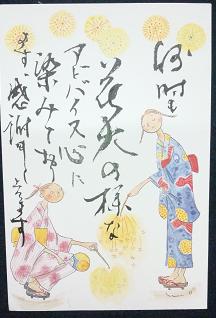 何時も
花火の様な
アドバイス心に
染みており
ます感謝申し
上げます